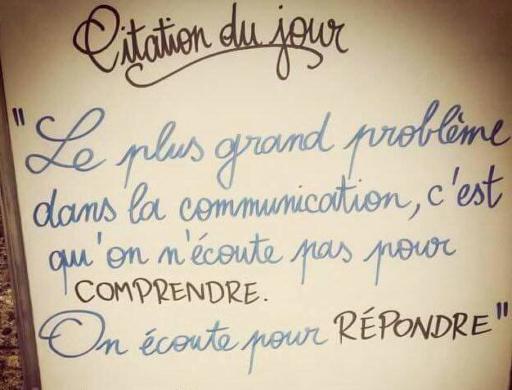 Citation du jour
"Le plus grand problème
dans la communication, c'est
qu'on n'écoute pas pour
COMPRENDRE.
On écoute pour RÉPONDRE"